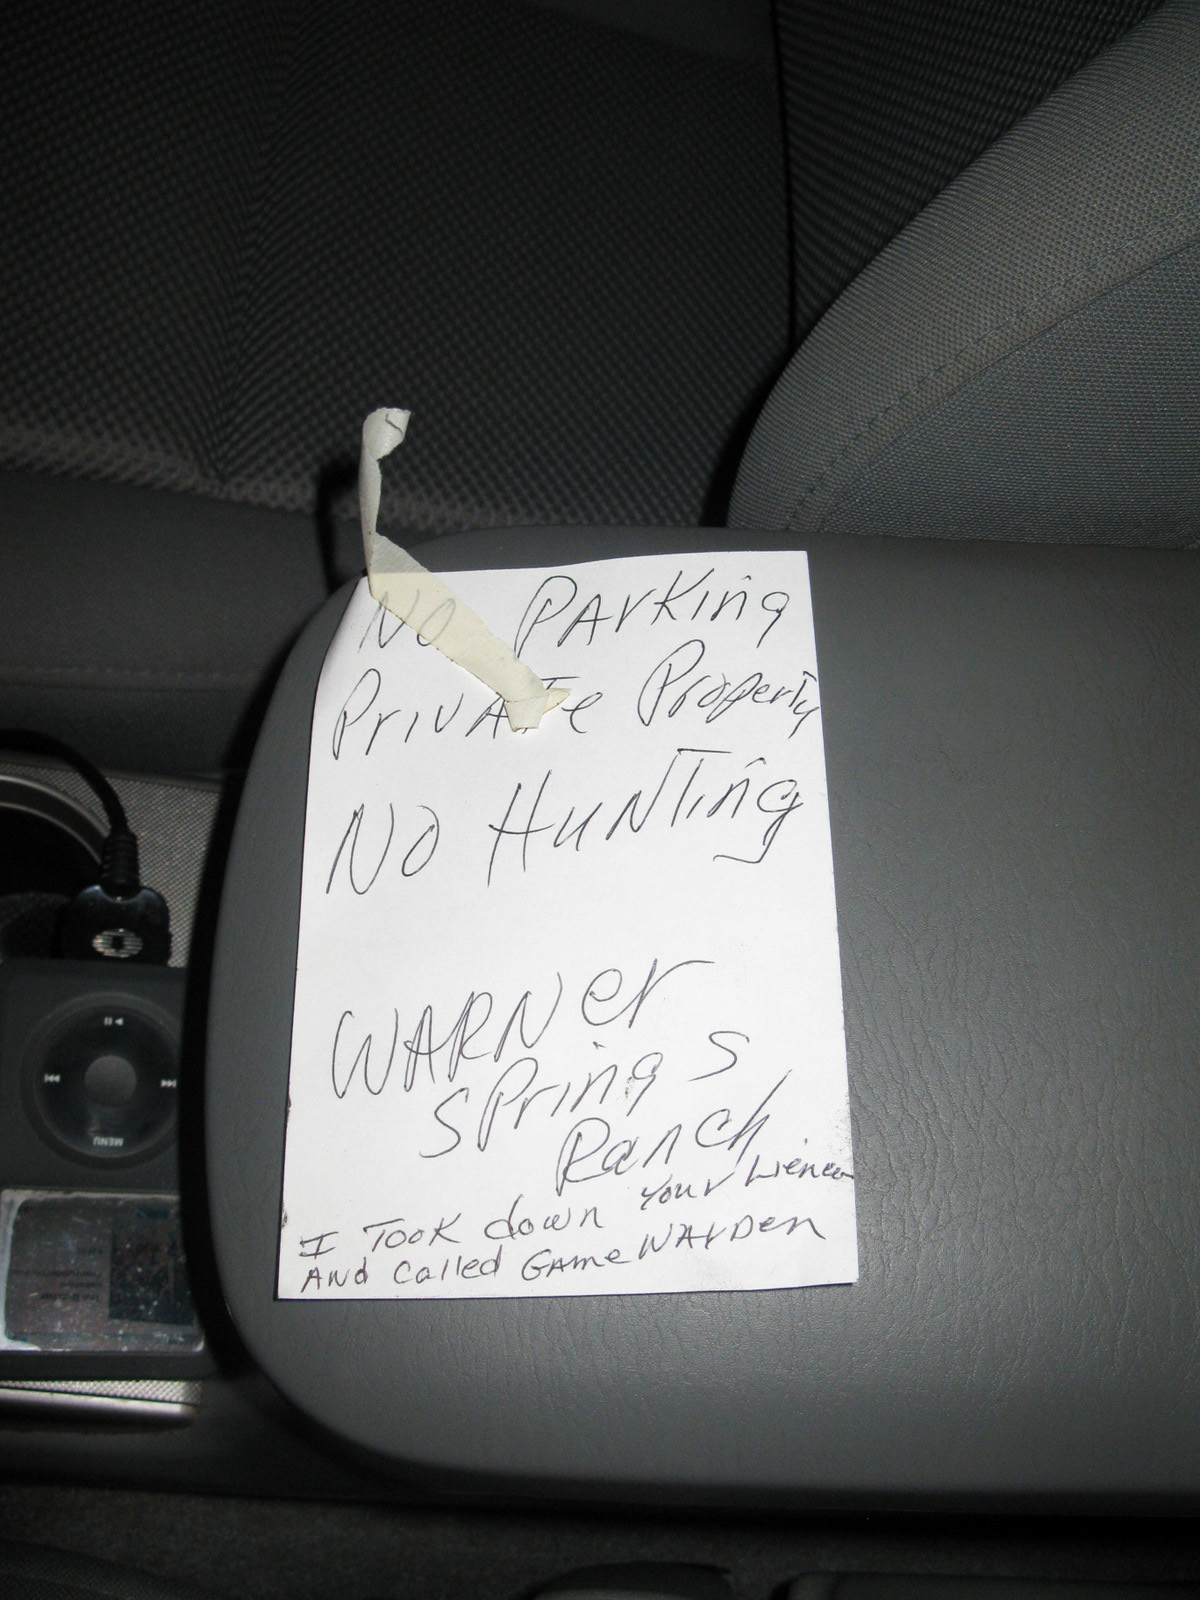 NO PArKing
PrivATe ProperTy
NO HuNTing
WARNer
SPrings
Ranch
I TooK down Your Lience
ANd Called Game WArDen
MENU